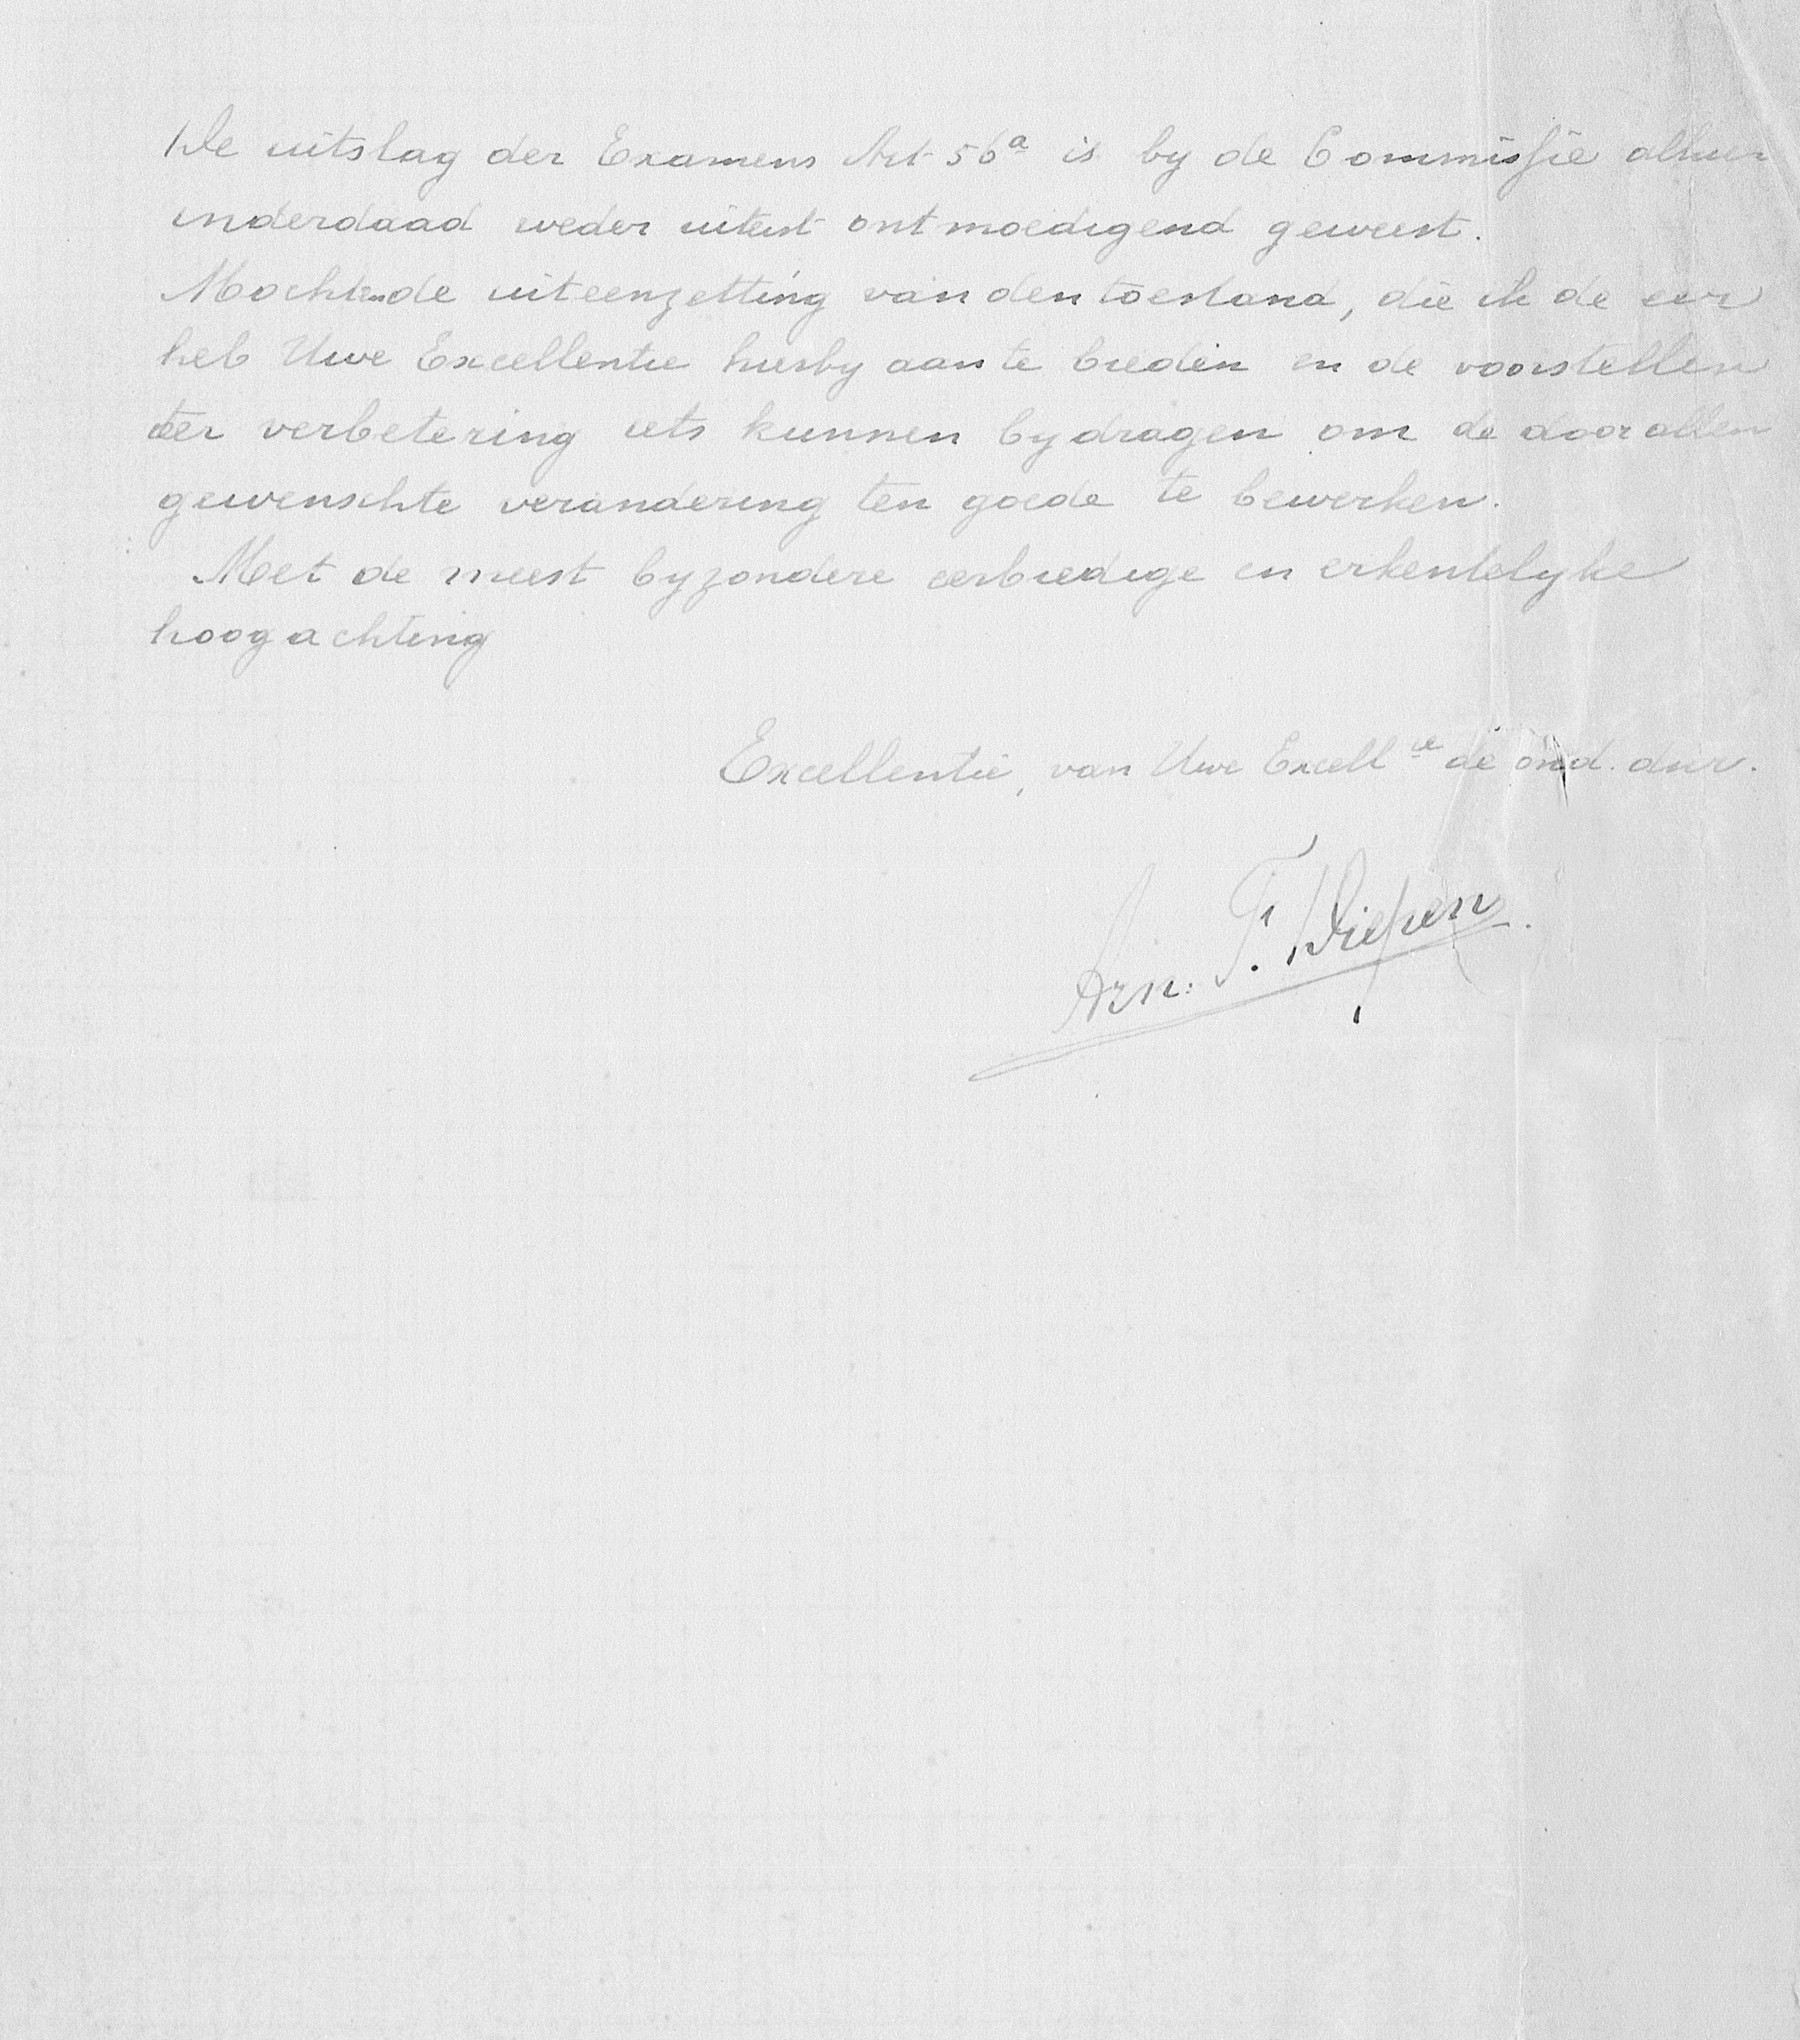 De uitslag der Examens Art 56a is by de Commissie alhier
inderdaad weder uiterst ontmoedigend geweest.
Mochten de uiteenzetting van den toestand, die ik de eer
heb Uwe Excellentie hierby aan te bieden en de voorstellen
ter verbetering iets kunnen bydragen om de door allen
gewenschte verandering ten goede te bewerken.
Met de meest byzondere eerbiedige en erkentelyke
hoogachting
Excellentie, van Uwe Excellie de ond. dnr.
Arn. F. Diepen.